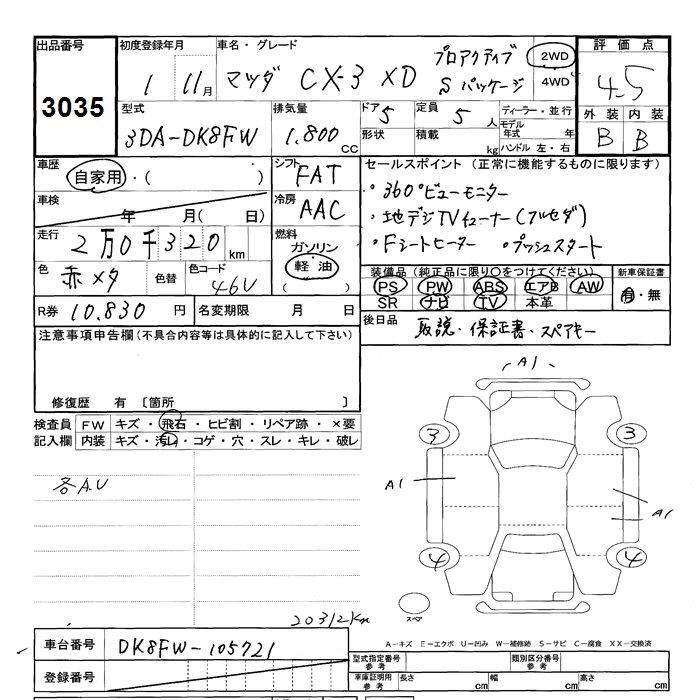 出品番号 初度登録年月 車名・グレード 評価点
3035 1 11月 マツダ CX-3 XD プロアクティブ Sパッケージ 2WD 4WD 4.5
外装 内装
B B
型式 3DA-DK8FW 排気量 1.800cc ドア 5 形状 定員 5人 積載 kg
ディーラー・並行
モデル年式 年
ハンドル 左・右
車歴 自家用・( )
シフト FAT
セールスポイント(正常に機能するものに限ります)
・360°ビューモニター
車検 年 月(日)
冷房 AAC
・地デジTVチューナー(フルセグ)
走行 2万0千320km
燃料 ガソリン 軽油 ( )
・Fシートヒーター ・プッシュスタート
色 赤メタ 色替 色コード 46V
装備品(純正品に限り○をつけてください) 新車保証書
PS PW ABS エアB AW 有・無
SR ナビ TV 本革
R券 10.830円 名変期限 月 日
後日品 取説・保証書・スペアキー
注意事項申告欄(不具合内容等は具体的に記入して下さい)
修復歴 有 〔箇所 〕
検査員記入欄 FW キズ・飛石・ヒビ割・リペア跡・×要
内装 キズ・汚れ・コゲ・穴・スレ・キレ・破レ
各A.U
A1
3 3
A1
A1
4 4
スペア
20312Km
A-キズ E-エクボ U-凹み W-補修跡 S-サビ C-腐食 XX-交換済
車台番号 DK8FW-105721
型式指定番号 参考 類別区分番号 参考
登録番号
車庫証明用 参考 長さ cm 幅 cm 高さ cm